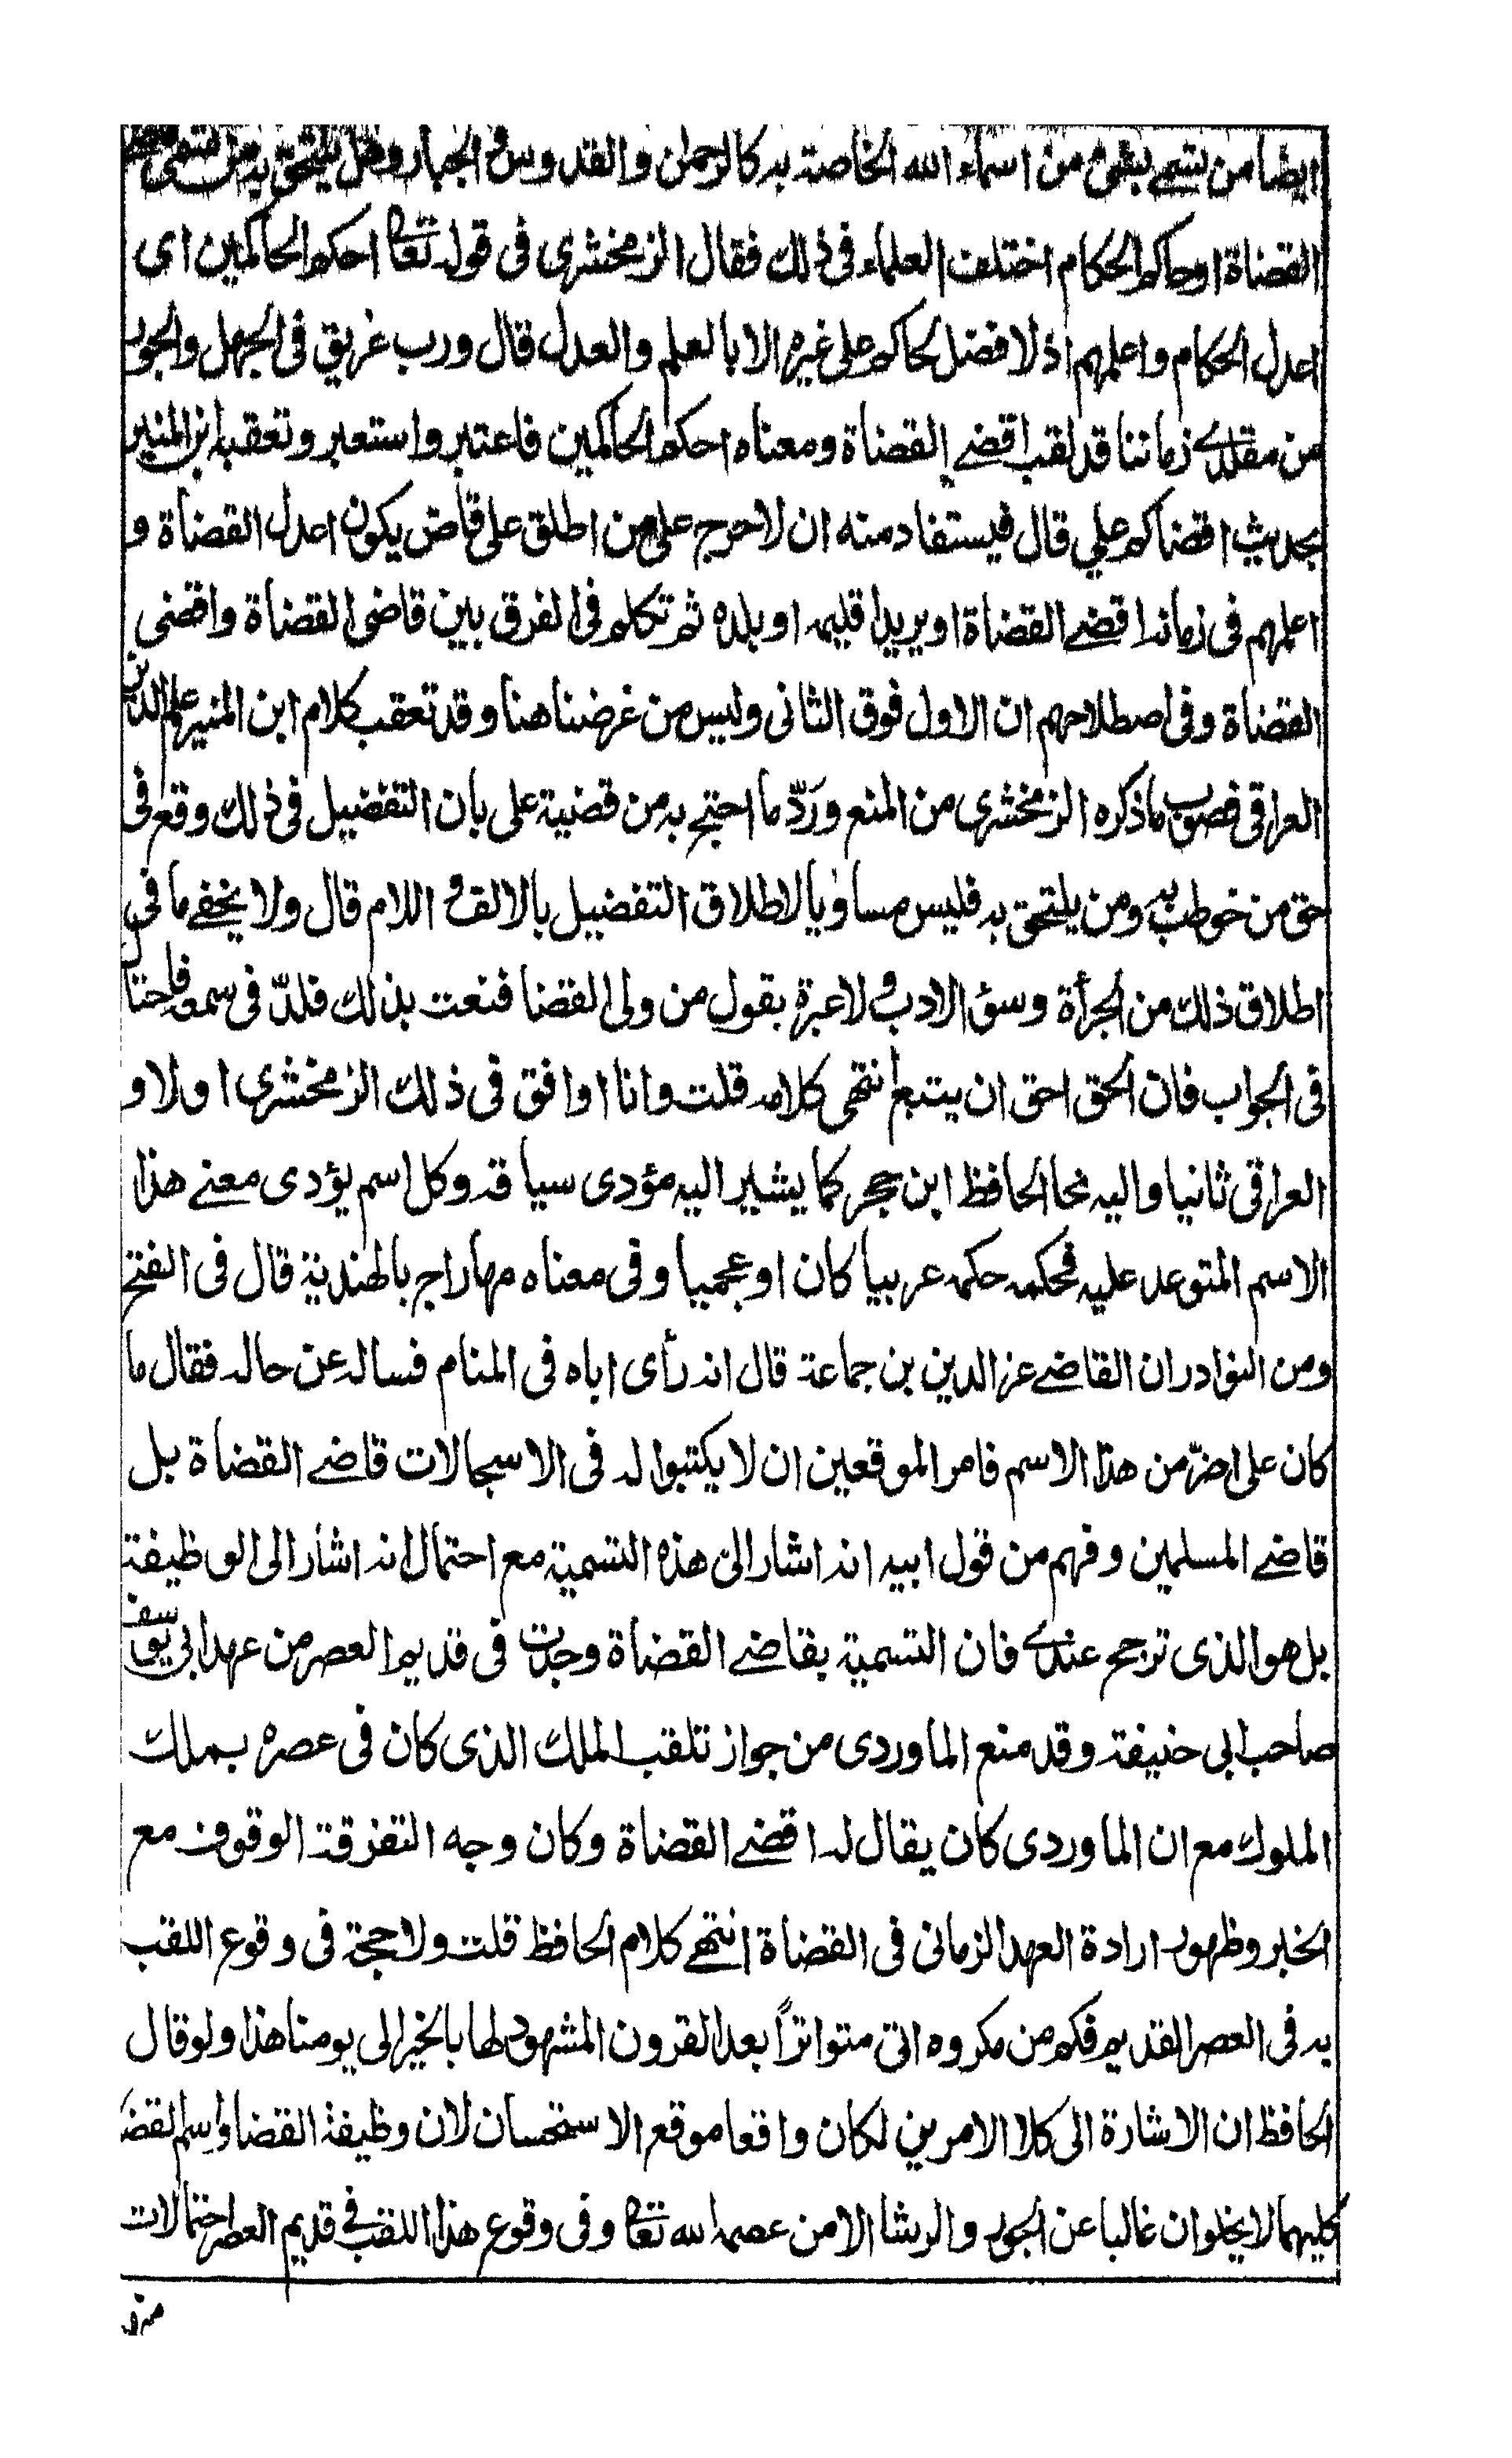 ايضا من تسمي بشئ من اسماء الله الخاصة به كالرحمن والقدوس والجبار وهل يلتحق به من تسمى
القضاة او حاكم الحكام اختلف العلماء فى ذلك فقال الزمخشرى فى قوله تعا احكم الحاكمين اى
اعدل الحكام واعلمهم اذ لا فضل لحاكم على غيره الا بالعلم والعدل قال ورب غريق فى الجهل والجور
من مقلدے زماننا قد لقب اقضے القضاة ومعناه احكم الحاكمين فاعتبر واستعبر وتعقبه ابن المنير
بحديث اقضاكم علي قال فيستفاد منه ان لا حرج على من اطلق على قاض يكون اعدل القضاة و
اعلمهم فى زمانه اقضے القضاة او يريد اقليمه او بلده ثم تكلم فى الفرق بين قاضى القضاة واقضى
القضاة وفى اصطلاحهم ان الاول فوق الثانى وليس من غرضنا هنا وقد تعقب كلام ابن المنير علم الدين
العراقى فصوب ما ذكره الزمخشرى من المنع وردّ ما احتج به من قضية على بان التفضيل فى ذلك وقع فى
حق من خوطب به ومن يلتحق به فليس مساويا لاطلاق التفضيل بالالف و اللام قال ولا يخفے ما فى
اطلاق ذلك من الجرأة وسؤ الادب و لا عبرة بقول من ولى القضا فنعت بذلك فلذّ فى سمعه فاحتال
فى الجواب فان الحق احق ان يتبع انتهى كلامه قلت وانا اوافق فى ذلك الزمخشرى اولا و
العراقى ثانيا واليه نحا الحافظ ابن حجر كما يشير اليه مؤدى سياقه وكل اسم يؤدى معنے هذا
الاسم المتوعد عليه فحكمه حكمه عربيا كان او عجميا وفى معناه مهاراجه بالهندية قال فى الفتح
ومن النوادر ان القاضے عز الدين بن جماعة قال انه رأى اباه فى المنام فساله عن حاله فقال ما
كان على اضرّ من هذا الاسم فامر الموقعين ان لا يكتبوا له فى الاسجالات قاضے القضاة بل
قاضے المسلمين وفهم من قول ابيه انه اشار الى هذه التسمية مع احتمال انه اشار الى الوظيفة
بل هو الذى ترجح عندے فان التسمية بقاضے القضاة وجدت فى قديم العصر من عهد ابى يوسف
صاحب ابى حنيفة وقد منع الماوردى من جواز تلقب الملك الذى كان فى عصره بملك
الملوك مع ان الماوردى كان يقال له اقضے القضاة وكان وجه التفرقة الوقوف مع
الخبر وظهور ارادة العهد الزمانى فى القضاة انتهے كلام الحافظ قلت ولا حجة فى وقوع اللقب
به فى العصر القديم فكم من مكروه اتى متواترًا بعد القرون المشهود لها بالخير الى يومنا هذا ولو قال
الحافظ ان الاشارة الى كلا الامرين لكان واقعا موقع الاستحسان لان وظيفة القضا واسم القضا
كليهما لا يخلوان غالبا عن الجور والرشا الا من عصمه الله تعا وفى وقوع هذا اللقب فے قديم العصر احتمالات